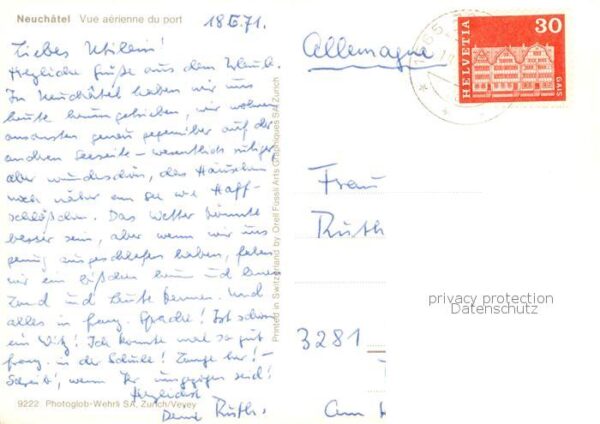 Neuchâtel Vue aérienne du port
18.6.71.
Liebes Utilein!
Herzliche Grüße aus dem Urlaub.
In Neuchâtel haben wir uns
heute herumgetrieben, wir wohnen
ansonsten genau gegenüber auf der
andren Seeseite - wesentlich ruhiger
aber wunderschön, das Häuschen
noch näher am See wie Haff-
schlößchen. Das Wetter könnte
besser sein, aber wenn wir uns
genug ausgeschlafen haben, fahren
wir ein bißchen herum und lernen
Land und Leute kennen. Und
alles in franz. Sprache! Ist schon
ein Witz! Ich konnte mal so gut
franz. in der Schule! Lange her! -
Schreib', wenn Ihr umgezogen seid!
Herzlichst
Deine Ruth.
9222 Photoglob-Wehrli SA, Zürich/Vevey
Printed in Switzerland by Orell Füssli Arts Graphiques SA Zurich
Allemagne
HELVETIA
30
GAIS
Frau
Ruth
3281
Am
privacy protection
Datenschutz